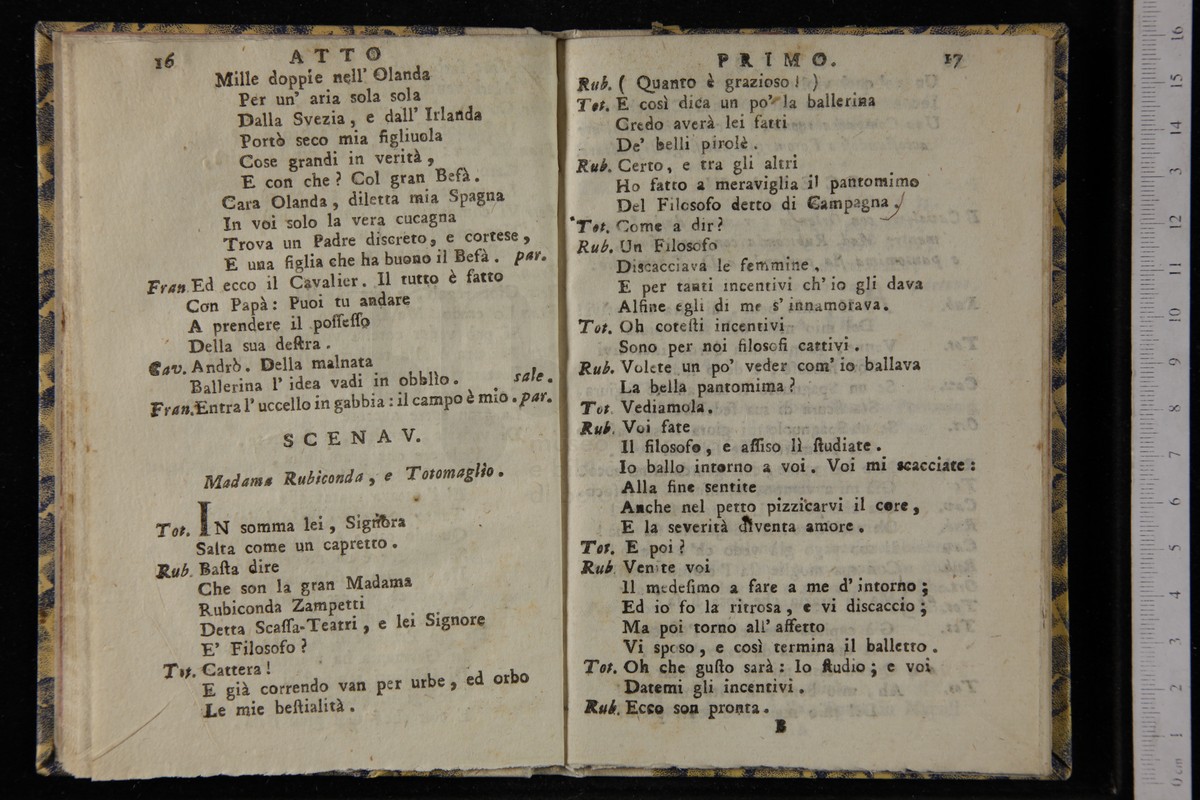 16 ATTO
Mille doppie nell' Olanda
Per un' aria sola sola
Dalla Svezia, e dall' Irlanda
Portò seco mia figliuola
Cose grandi in verità,
E con che? Col gran Befà.
Cara Olanda, diletta mia Spagna
In voi solo la vera cucagna
Trova un Padre discreto, e cortese,
E una figlia che ha buono il Befà. par.
Fran. Ed ecco il Cavalier. Il tutto è fatto
Con Papà: Puoi tu andare
A prendere il poſſeſſo
Della sua deſtra.
Cav. Andrò. Della malnata
Ballerina l' idea vadi in obblìo. sale.
Fran. Entra l' uccello in gabbia: il campo è mio. par.
SCENA V.
Madama Rubiconda, e Totomaglio.
Tot. IN somma lei, Signora
Salta come un capretto.
Rub. Baſta dire
Che son la gran Madama
Rubiconda Zampetti
Detta Scaſſa-Teatri, e lei Signore
E' Filosofo?
Tot. Cattera!
E già correndo van per urbe, ed orbo
Le mie beſtialità.
PRIMO. 17
Rub. ( Quanto è grazioso! )
Tot. E così dica un po' la ballerina
Credo averà lei fatti
De' belli pirolè.
Rub. Certo, e tra gli altri
Ho fatto a meraviglia il pantomimo
Del Filosofo detto di Campagna,
Tot. Come a dir?
Rub. Un Filosofo
Discacciava le femmine,
E per tanti incentivi ch' io gli dava
Alfine egli di me s' innamorava.
Tot. Oh coteſti incentivi
Sono per noi filosofi cattivi.
Rub. Volete un po' veder com' io ballava
La bella pantomima?
Tot. Vediamola.
Rub. Voi fate
Il filosofo, e aſſiso lì ſtudiate.
Io ballo intorno a voi. Voi mi scacciate:
Alla fine sentite
Anche nel petto pizzicarvi il core,
E la severità diventa amore.
Tot. E poi?
Rub. Venite voi
Il medeſimo a fare a me d' intorno;
Ed io fo la ritrosa, e vi discaccio;
Ma poi torno all' affetto
Vi sposo, e così termina il balletto.
Tot. Oh che guſto sarà: Io ſtudio; e voi
Datemi gli incentivi.
Rub. Ecco son pronta.
B